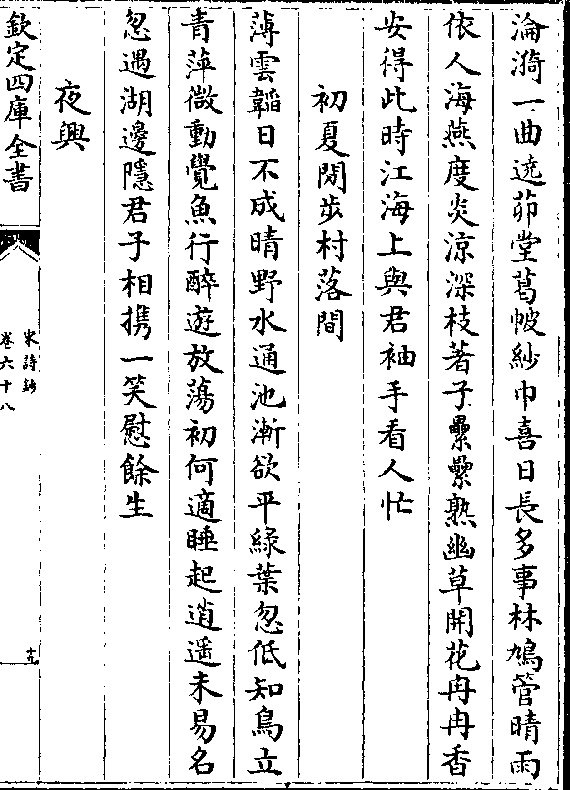 淪漪一曲遶茆堂葛帔紗巾喜日長多事林鳩管晴雨
依人海燕度炎涼深枝著子纍纍熟幽草開花冉冉香
安得此時江海上與君袖手看人忙
初夏閒步村落間
薄雲韜日不成晴野水通池漸欲平綠葉忽低知鳥立
青萍微動覺魚行醉遊放蕩初何適睡起逍遙未易名
忽遇湖邊隱君子相攜一笑慰餘生
夜興
欽定四庫全書
宋詩鈔
卷六十八
十九